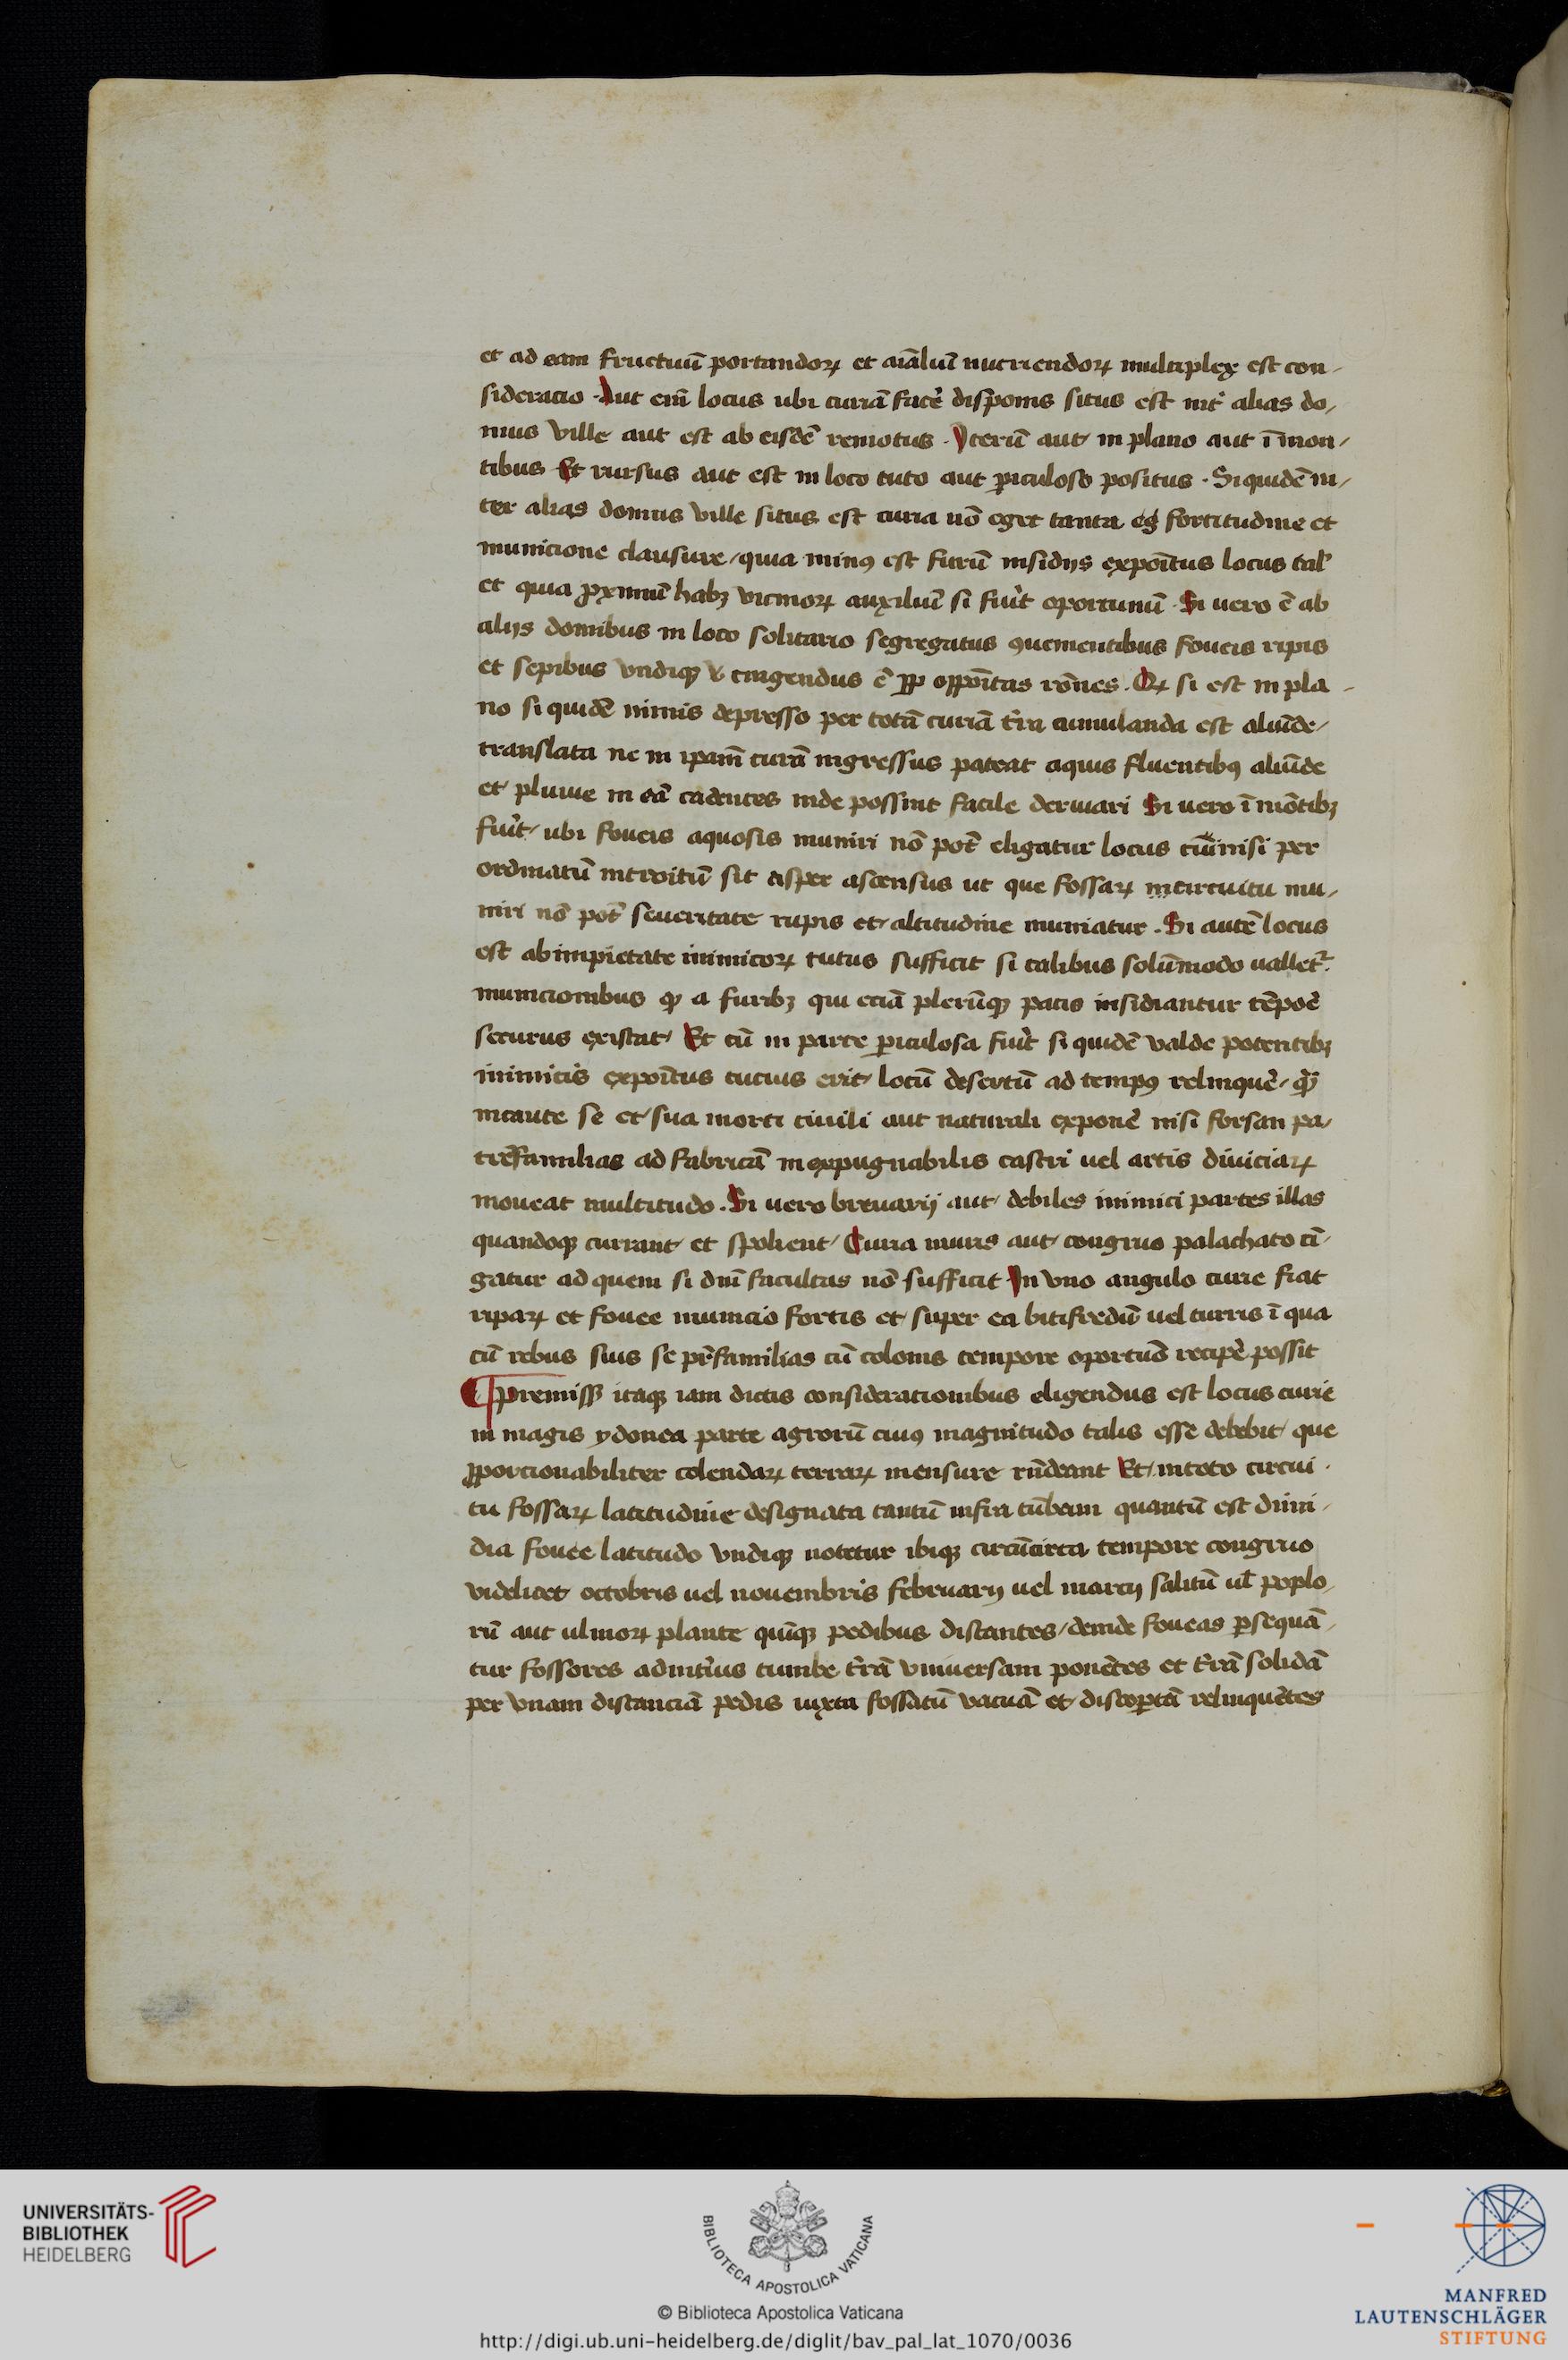 et ad eam fructuū portandoꝝ et aīaliū nutriendoꝝ multiplex est con-
sideratio · Aut em̄ locus ubi curiā facẽ disponis situs est int̾ alias do-
mus ville aut est ab eisdē remotus · Iterū aut in plano aut ī mon-
tibus Et rursus aut est in loco tuto aut ꝑiculoso positus · Si quidē in-
ter alias domus ville situs est curia nō eget tanta eg̃ fortitudine et
municione clausure / quia minꝰ est furū insidijs expoītus locus tal̾
et quia ꝓximiū habꝫ vicinoꝝ auxiliū si fuīt oportunū · Si vero ē ab
alijs domibus in loco solitario segregatus ꝯuenientibus foueis ripis
et sepibus vndiqꝫ cingendus ē ꝓp opp̄oītas rōnes · Qꝝ si est in pla-
no si quidē nimis depresso per totā curiā t̾ra cumulanda est aliūde
translata ne in ipam̄ curā ingressus pateat aquis fluentibꝰ aliūde
et pluuie in eā cadentes inde possint facile deriuari Si vero ī mōtibꝫ
fuīt / ubi foueis aquosis muniri nō pot̄ eligatur locus cui nisi per
ordinatū introitū sit asper ascensus ut que fossaꝝ in circuitu mu-
niri nō pot̄ seueritate rupis et altitudine muniatur . Si autē locus
est ab impietate inimicoꝝ tutus sufficit si talibus solūmodo valletr̾
municionibus qꝫ a furibꝫ qui eciā plerūqꝫ pacis insidiantur tēpoẽ
securus existat / Et cū in parte ꝑiculosa fuīt si quidē valde potentibꝫ
inimicis expoītus tucius erit / locū desertū ad tempꝰ relinquẽ / qꝫ̄
incaute se et sua morti ciuili aut naturali exponẽ nisi forsan pa-
trē familias ad fabricā inexpugnabilis castri uel artis diuiciaꝝ
moueat multitudo . Si uero breuarij aut debiles inimici partes illas
quandoqꝫ currant et spolient / Curia muris aut congruo palachato cī-
gatur ad quem si dn̄i facultas nō sufficit In vno angulo curie fiat
ripaꝝ et fouee municio fortis et super ea bitifredū uel turris ī qua
cū rebus suis se pr̄familias cū colonis tempore oportūo recipẽ possit
¶ Premissꝫ itaqꝫ iam dictis considerationibus eligendus est locus curie
in magis ydonea parte agrorū cuiꝰ magnitudo talis esse debebit que
ꝓporcionabiliter colendaꝝ terraꝝ mensure rn̄deant Et in toto circui-
tu fossaꝝ latitudine designata tantū infra tūbam quantū est dimi-
dia fouee latitudo vndiqꝫ notetur ibiqꝫ circūcirca tempore congruo
videlicet octobris uel nouembris februarij uel marcij salicū ul̄ poplo-
rū aut ulmoꝝ plante quīqꝫ pedibus distantes / deinde foueas ꝑsequā-
tur fossores ad int̾ius tumbe t̾rā vniuersam ponētes et t̾rā solidā
per vnam distanciā pedis iuxta fossatū vacuā et discoꝑtā relinquētes
UNIVERSITÄTS-
BIBLIOTHEK
HEIDELBERG
BIBLIOTECA APOSTOLICA VATICANA
© Biblioteca Apostolica Vaticana
http://digi.ub.uni-heidelberg.de/diglit/bav_pal_lat_1070/0036
MANFRED
LAUTENSCHLÄGER
STIFTUNG